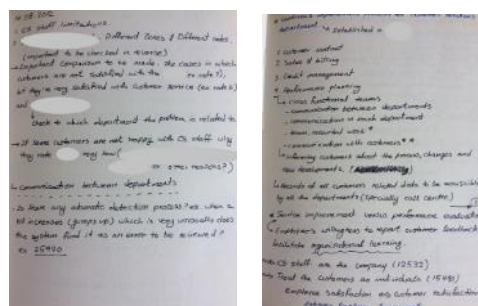 1. CS staff limitations
, Different Zones & Different rates,
(important to be checked in reverse)
→ Important comparison to be made: the cases in which
customers are not satisfied with the
bt they're very satisfied with customer service (ex
and
check to which department the problem is related to
→ if some customers are not happy with CS staff why
they rate very low (
or other reasons?)
communication between departments
is there any automatic detection process? ex. when a
bill increases (jumps up) which is very unusually does
the system find it as an error to be reviewed?
ex 25490
department
1 customer contact
2 Sales & billing
3 Credit management
4 Performance planning
cross functional teams
- communication between departments
- communication in each department
- team
- communication with customers **
informing customers about the process, changes and
new developments.
Records of all customers related data to be accessible
by all the departments (specially call centre)
* Service improvement versus performance evaluation
employees willingness to report customer feedback
facilitate organisational learning.
CS staff are the company (12532)
Treat the customers as individuals (15490)
Employee satisfaction as customer satisfaction